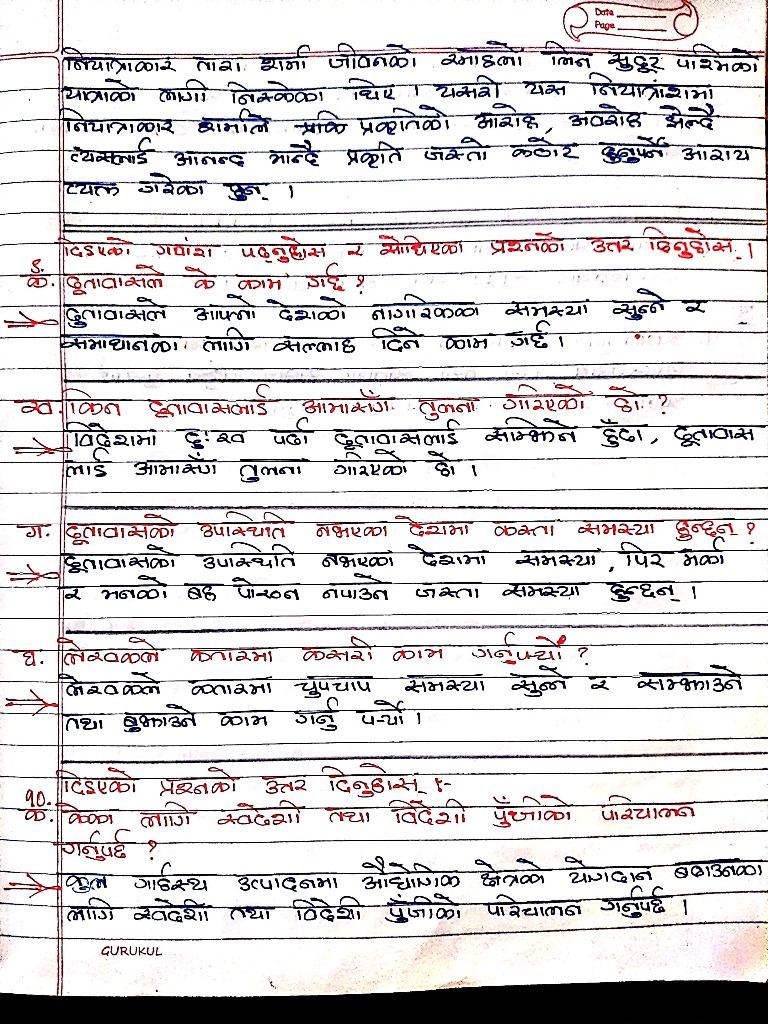 Date
Page
नियात्राकार तारा शर्मा जीवनको लिन सुदूर पश्चिमको
यात्राको लागि निस्केका थिए । यसरी यस नियात्रांशमा
नियात्राकार शर्माले प्रकृतिको आरोह, अवरोह झेल्दै
त्यसलाई आनन्द मान्दै प्रकृति जस्तो कठोर हुनुपर्ने आशय
व्यक्त गरेका छन् ।
दिइएको गद्यांश पढ्नुहोस र सोधिएका प्रश्नको उत्तर दिनुहोस् ।
९.
क. दूतावासले के काम गर्छ ?
दुतावासले आफ्नो देशको नागरिकका समस्या सुन्ने र
समाधानका लागि सल्लाह दिने काम गर्छ ।
ख. किन दूतावासलाई आमासँग तुलना गरिएको हो ?
विदेशमा दुःख पर्दा दूतावासलाई सम्झिने हुँदा, दूतावास
लाई आमासँग तुलना गरिएको हो ।
ग. दूतावासको उपस्थिति नभएका देशमा कस्ता समस्या हुन्छन् ?
दूतावासको उपस्थिति नभएका देशमा समस्या, पिर मर्का
र मनको बह पोख्न नपाउने जस्ता समस्या हुन्छन् ।
घ. लेखकले कतारमा कसरी काम गर्नुपर्थ्यो ?
लेखकले कतारमा चुपचाप समस्या सुन्ने र सम्झाउने
तथा बुझाउने काम गर्नु पर्थ्यो ।
दिइएको प्रश्नको उत्तर दिनुहोस् :-
१०.
क. केका लागि स्वदेशी तथा विदेशी पुँजीको परिचालन
गर्नुपर्छ ?
कुल गार्हस्थ्य उत्पादनमा औद्योगिक क्षेत्रको योगदान बढाउनका
लागि स्वदेशी तथा विदेशी पुँजीको परिचालन गर्नुपर्छ ।
GURUKUL